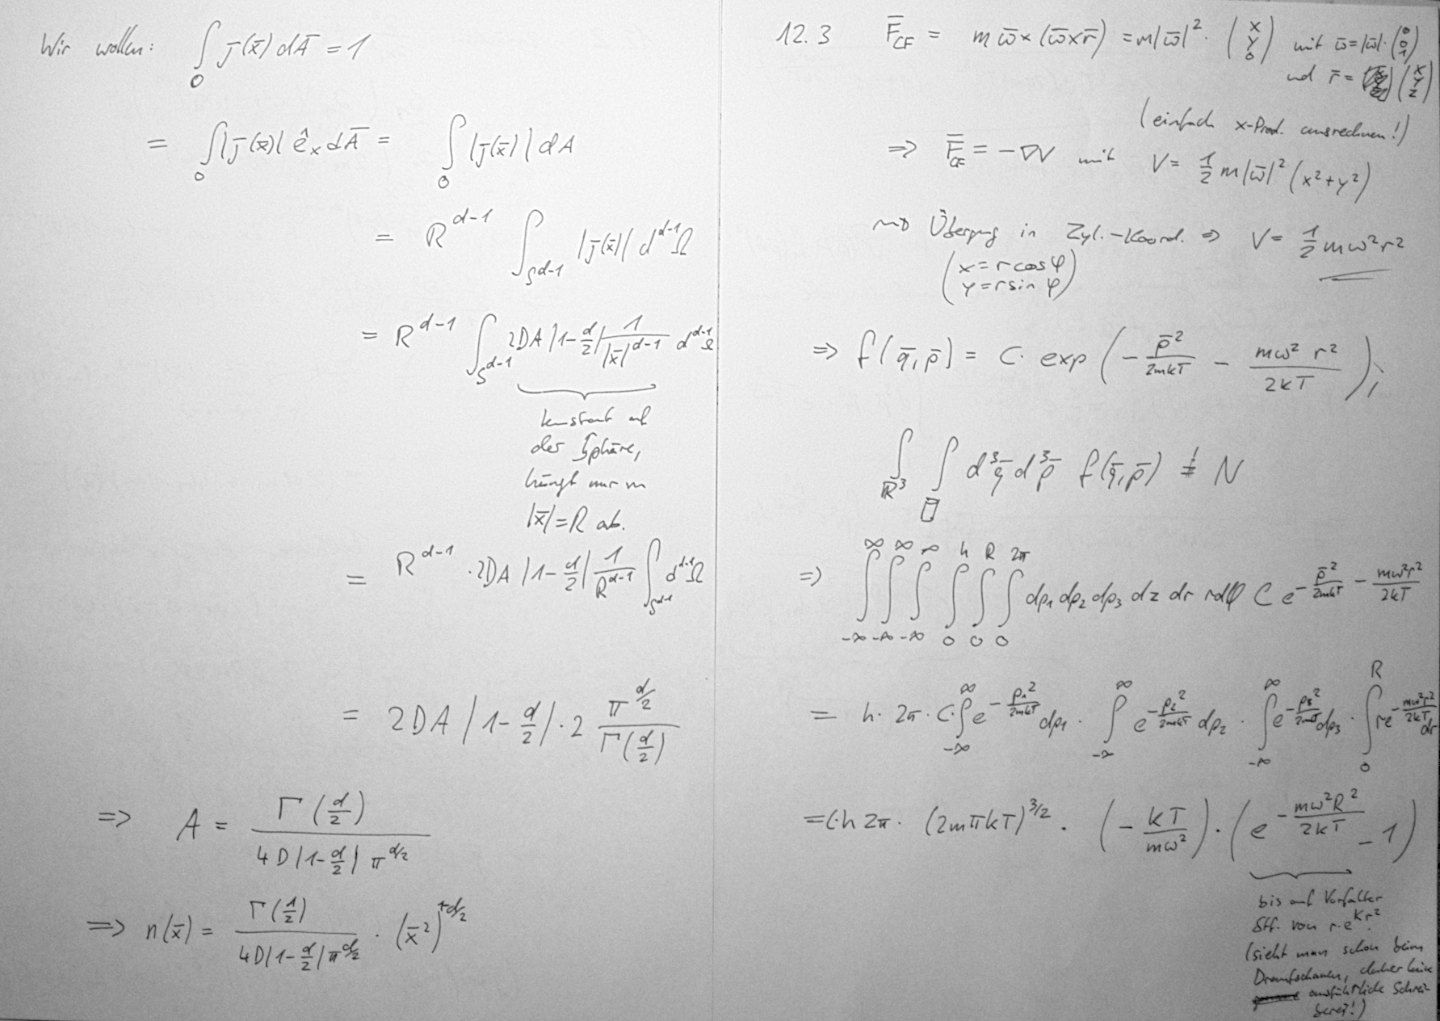 Wir wollen: ∫_O j(x̄) dĀ = 1
= ∫_O |j(x̄)| ê_x dĀ = ∫_O |j(x̄)| dA
= R^{d-1} ∫_{S^{d-1}} |j(x̄)| d^{d-1}Ω
= R^{d-1} ∫_{S^{d-1}} 2DA |1-d/2| 1/|x̄|^{d-1} d^{d-1}Ω
konstant auf
der Sphäre,
hängt nur von
|x̄|=R ab.
= R^{d-1} · 2DA |1-d/2| 1/R^{d-1} ∫_{S^{d-1}} d^{d-1}Ω
= 2DA |1-d/2| · 2 π^{d/2}/Γ(d/2)
=> A = Γ(d/2) / (4D|1-d/2| π^{d/2})
=> n(x̄) = Γ(1/2) / (4D|1-d/2| π^{d/2}) · (x̄²)^{1-d/2}
12.3 F̄_CF = m ω̄×(ω̄×r̄) = m|ω̄|² · (x y 0) mit ω̄=|ω̄|·(0 0 1)
und r̄ = (x y z)
(einfach x-Prod. ausrechnen!)
=> F̄_CF = -∇V mit V = 1/2 m|ω̄|² (x²+y²)
Übergang in Zyl.-Koord. => V = 1/2 mω²r²
(x = r cos φ
y = r sin φ)
=> f(q̄, p̄) = C · exp(- p̄²/2mkT - mω² r²/2kT);
∫_{ℝ³} ∫ d³q̄ d³p̄ f(q̄, p̄) =! N
=> ∫_{-∞}^{∞} ∫_{-∞}^{∞} ∫_{-∞}^{∞} ∫_0^h ∫_0^R ∫_0^{2π} dp₁ dp₂ dp₃ dz dr rdφ C e^{-p̄²/2mkT - mω²r²/2kT}
= h · 2π · C · ∫_{-∞}^{∞} e^{-p₁²/2mkT} dp₁ · ∫_{-∞}^{∞} e^{-p₂²/2mkT} dp₂ · ∫_{-∞}^{∞} e^{-p₃²/2mkT} dp₃ · ∫_0^R r e^{-mω²r²/2kT} dr
= C·h 2π · (2mπkT)^{3/2} · (- kT/mω²) · (e^{-mω²R²/2kT} - 1)
bis auf Vorfaktor
Stf. von r·e^{Kr²}
(sieht man schon beim
Draufschauen, daher keine
ausführliche Schrei-
berei!)